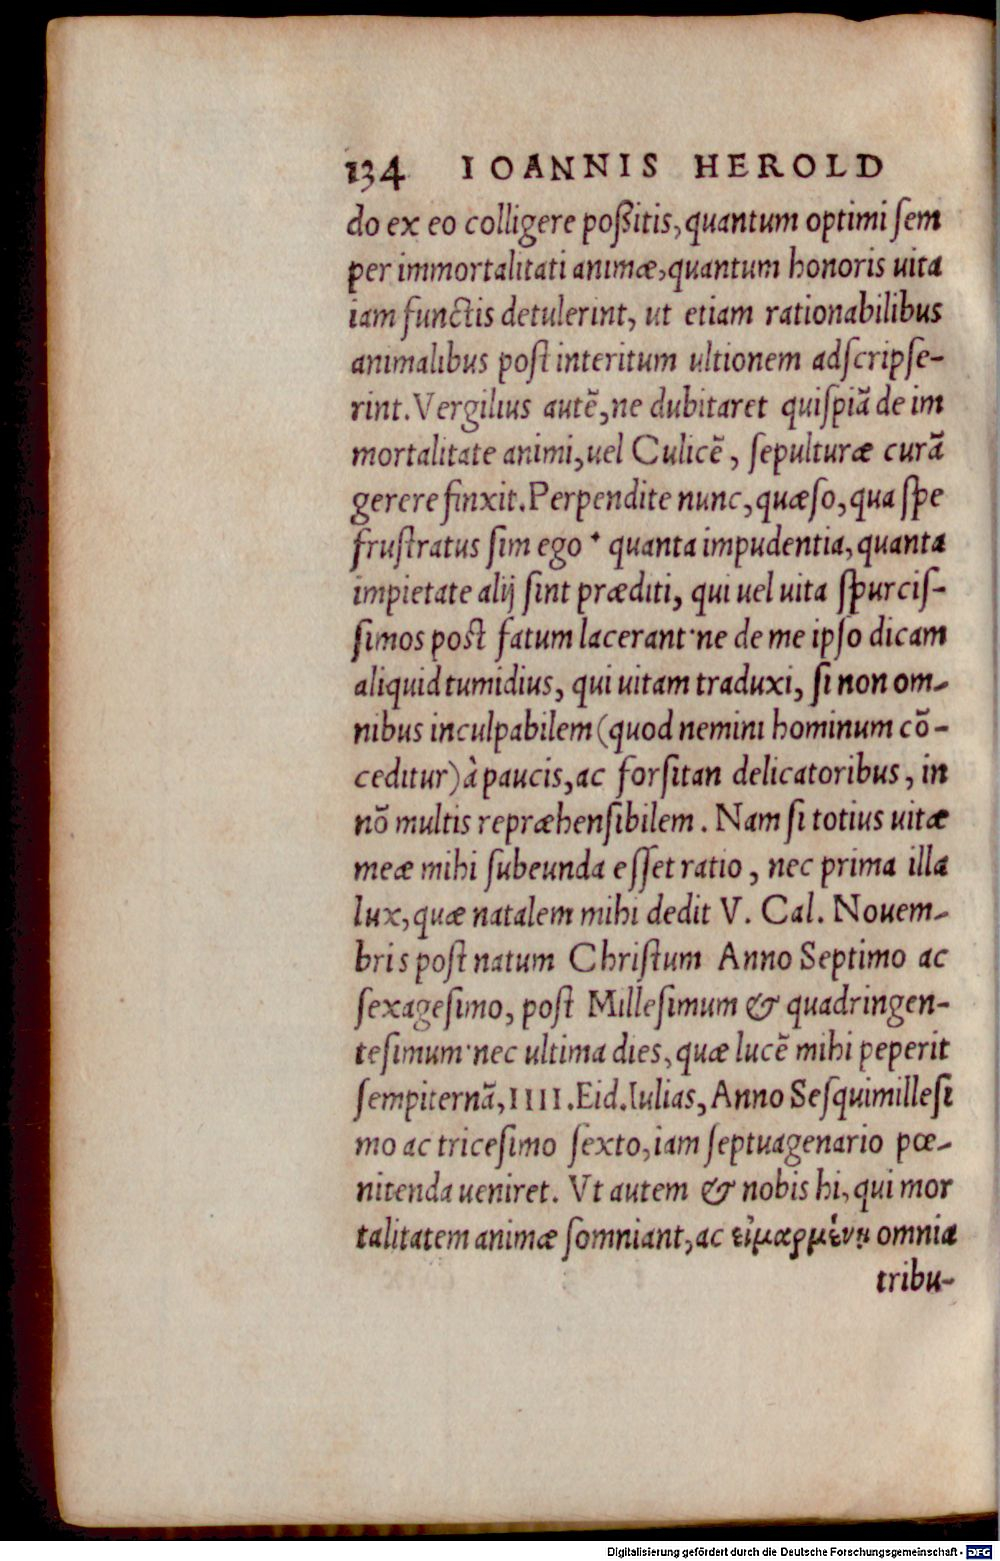 134 IOANNIS HEROLD
do ex eo colligere poßitis, quantum optimi ſem
per immortalitati animæ, quantum honoris uita
iam functis detulerint, ut etiam rationabilibus
animalibus poſt interitum ultionem adſcripſe-
rint. Vergilius autẽ, ne dubitaret quiſpiã de im
mortalitate animi, uel Culicẽ, ſepulturæ curã
gerere finxit. Perpendite nunc, quæſo, qua ſpe
fruſtratus ſim ego ˙ quanta impudentia, quanta
impietate alij ſint præditi, qui uel uita ſpurciſ-
ſimos poſt fatum lacerant˙ ne de me ipſo dicam
aliquid tumidius, qui uitam traduxi, ſi non om-
nibus inculpabilem (quod nemini hominum cõ-
ceditur) à paucis, ac forſitan delicatoribus, in
nõ multis repræhenſibilem. Nam ſi totius uitæ
meæ mihi ſubeunda eſſet ratio, nec prima illa
lux, quæ natalem mihi dedit V. Cal. Nouem-
bris poſt natum Chriſtum Anno Septimo ac
ſexageſimo, poſt Milleſimum & quadringen-
teſimum˙ nec ultima dies, quæ lucẽ mihi peperit
ſempiternã, IIII. Eid. Iulias, Anno Seſquimilleſi
mo ac triceſimo ſexto, iam ſeptuagenario pœ-
nitenda ueniret. Vt autem & nobis hi, qui mor
talitatem animæ ſomniant, ac εἱμαρμένῃ omnia
tribu-
Digitalisierung gefördert durch die Deutsche Forschungsgemeinschaft - DFG